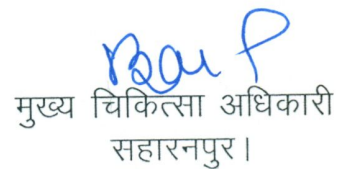 मुख्य चिकित्सा अधिकारी
सहारनपुर।